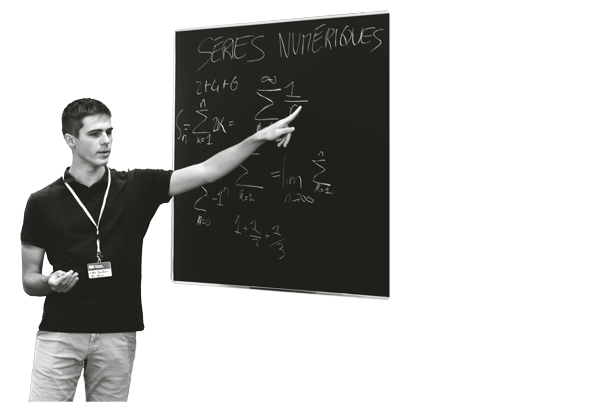 SÉRIES NUMÉRIQUES
2+4+6
S_n = ∑_{k=1}^{n} 2k =
∑^{∞} 1
∑_{n=0} -1^n
∑_{k=1} = lim_{n→∞} ∑_{k=1}^{n}
1 + 1/2 + 1/3